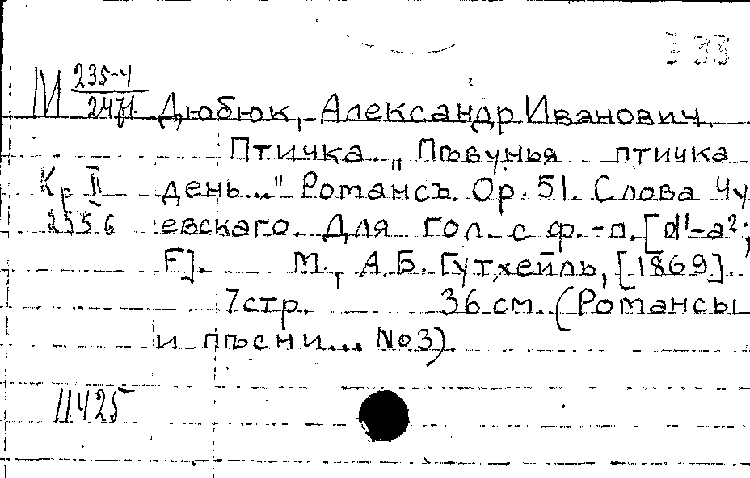 333
М 235-4
2471 Дюбюк, Александр Иванович.
Птичка „Пѣвунья птичка
Кр II день..." Романсъ. Op. 51. Слова Чу
255б евскаго. Для гол. с ф.-п. [d¹-a²;
F]. М., А.Б. Гутхейль, [1869].
7 стр. 36 см. (Романсы
и пѣсни... №3)
11425